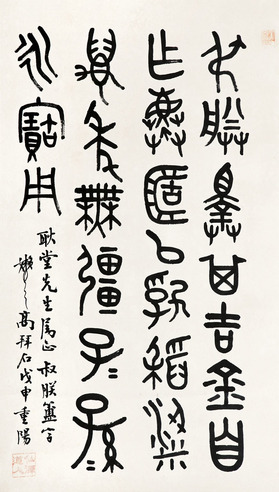 叔朕擇其吉金自
乍薦簠以敦稻粱
萬年無疆子=孫=
永寶用
耿堂先生属正 叔朕簠字
高拜石戊申重陽